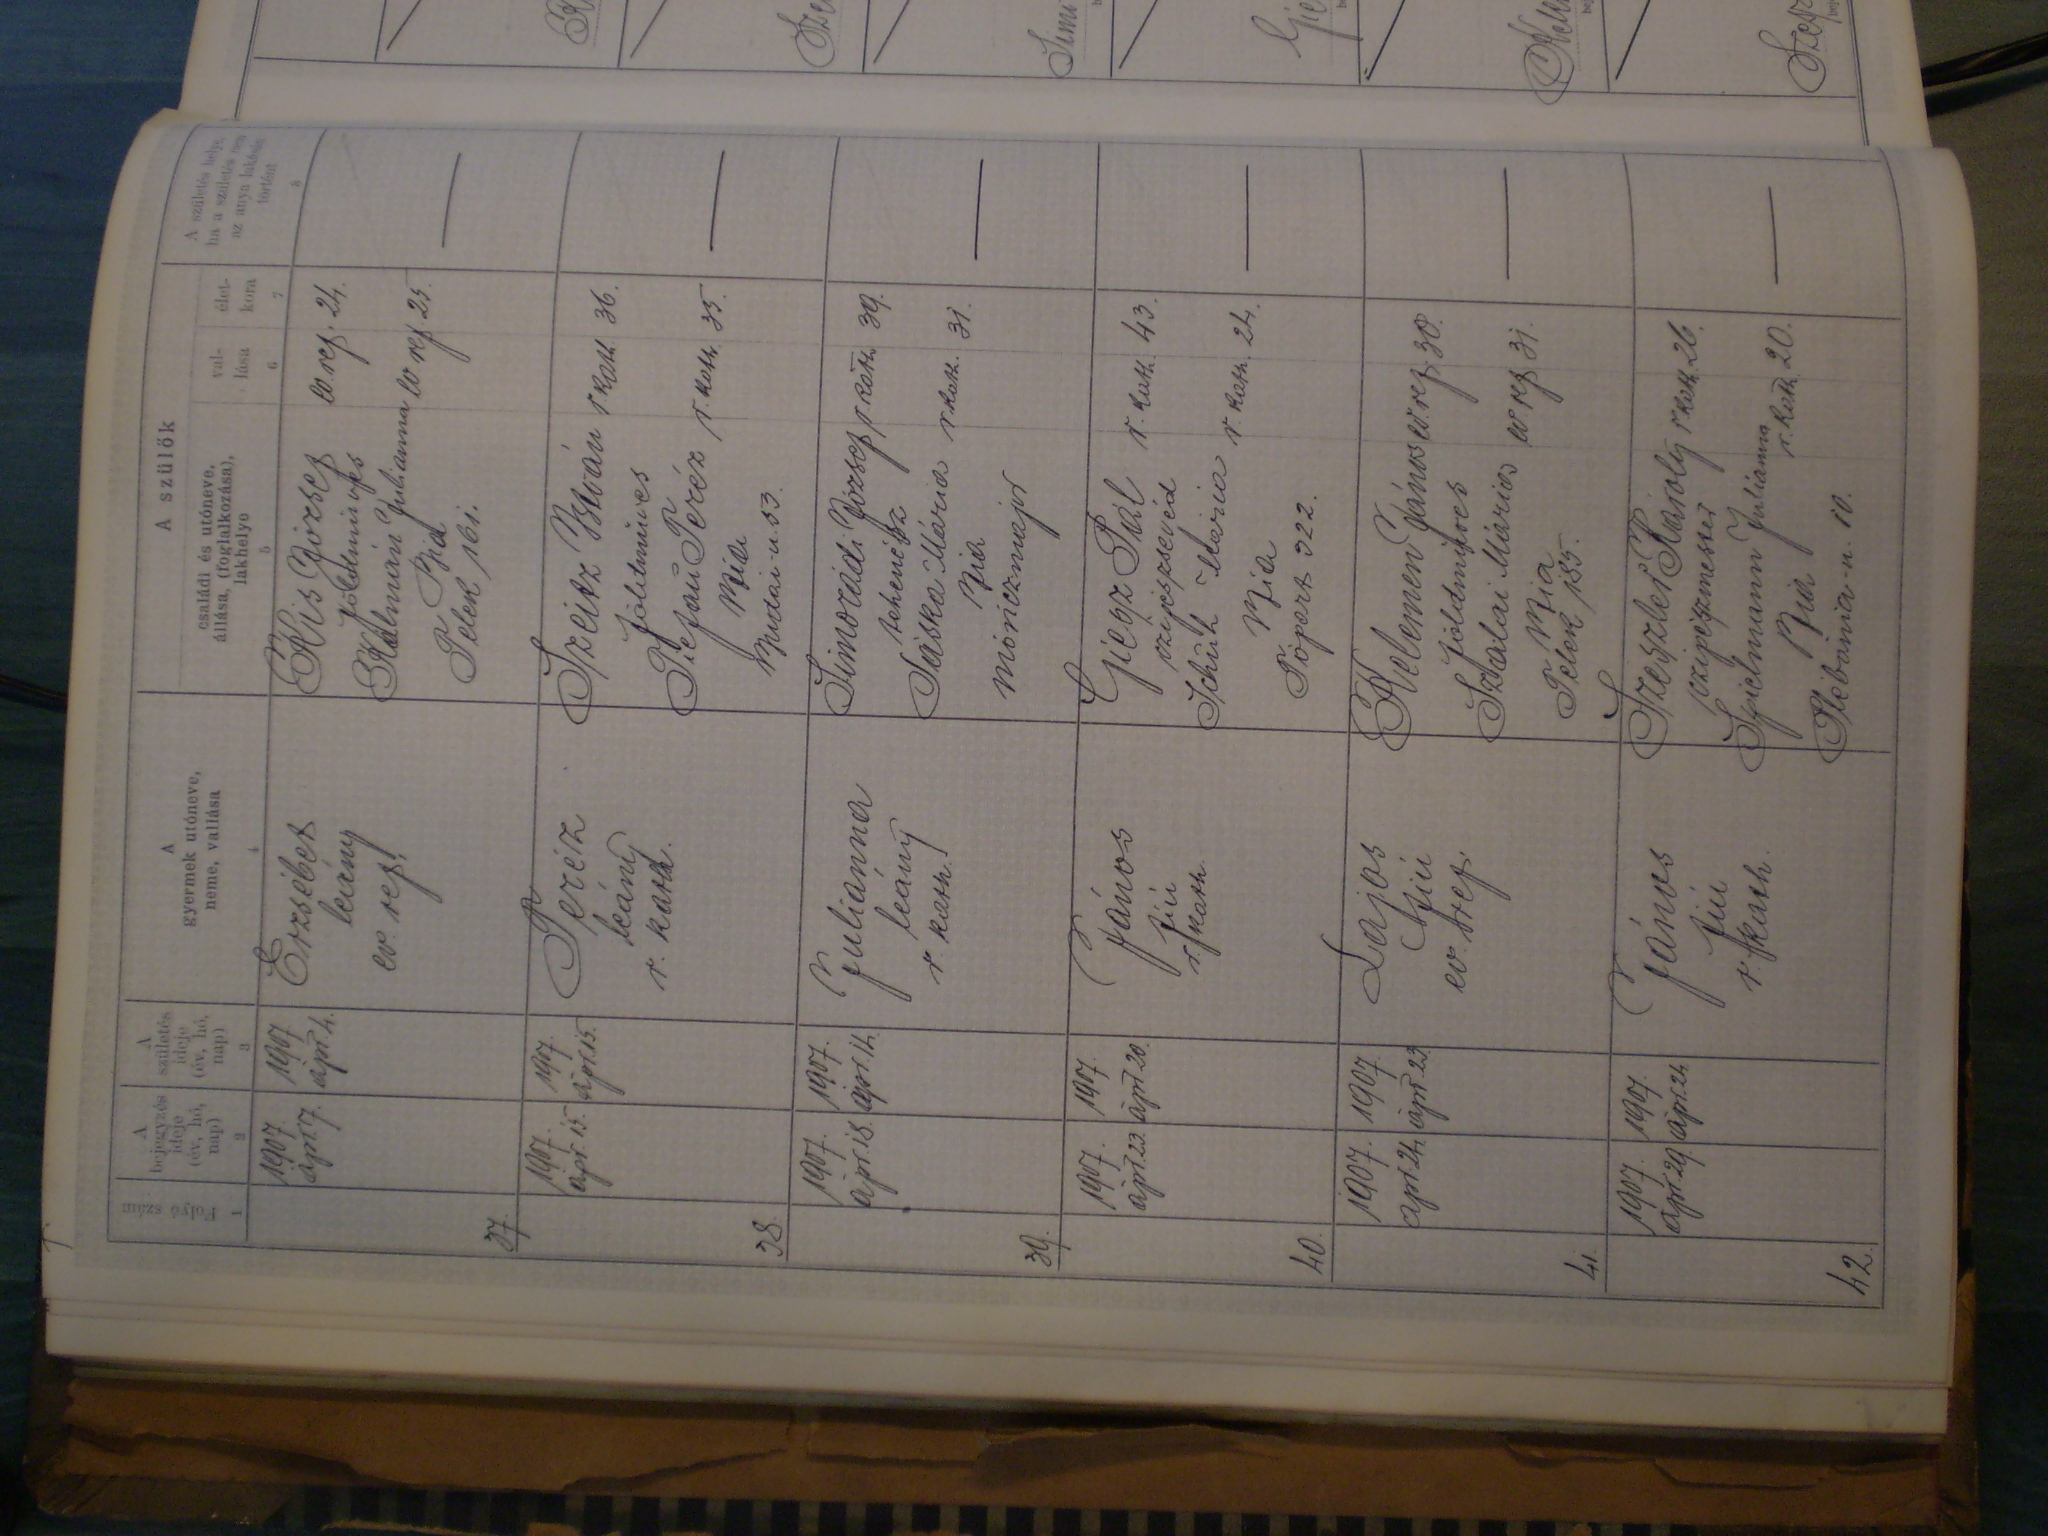 A szülők
Folyó szám
A bejegyzés ideje (év, hó, nap)
A születés ideje (év, hó, nap)
A gyermek utóneve, neme, vallása
családi és utóneve, állása, (foglalkozása), lakhelye
vallása
életkora
A születés helye, ha a születés nem az anya lakásán történt
1 2 3 4 5 6 7 8
37.
1907. ápr. 7.
1907 ápr. 4.
Erzsébet
leány
ev. ref.
Kis József ev ref. 24.
földmives
Kálmán Julianna ev ref. 25.
Bia
Telek 161.
38.
1907. ápr. 15.
1907. ápr. 15.
Teréz
leány
r. kath.
Szeitz István r kath. 36.
földmüves
Tiefau Teréz r. kath. 35.
Bia
Budai-u. 53.
39.
1907. ápr. 18.
1907. ápr. 14.
Julianna
leány
r. kath.
Simorádi József r. kath. 39.
tehenész
Sáska Mária r. kath. 31.
Bia
móriczmajor
40.
1907. ápr. 22.
1907. ápr. 20.
János
fiú
r. kath.
Giesz Pál r. kath. 43.
Schuk Mária r. kath. 24.
Bia
322.
41.
1907. ápr. 24.
1907 ápr. 23.
Lajos
fiú
ev. ref.
Kelemen János ev. ref 38.
földmives
Szalai Mária ev. ref 31.
Bia
Telek 185.
42.
1907. ápr. 29.
1907. ápr. 24.
János
fiú
r. kath.
Szeiszler Károly r kath. 26.
czipészmester
Spielmann Julianna r. kath. 20.
Bia
Plébánia-u. 10.